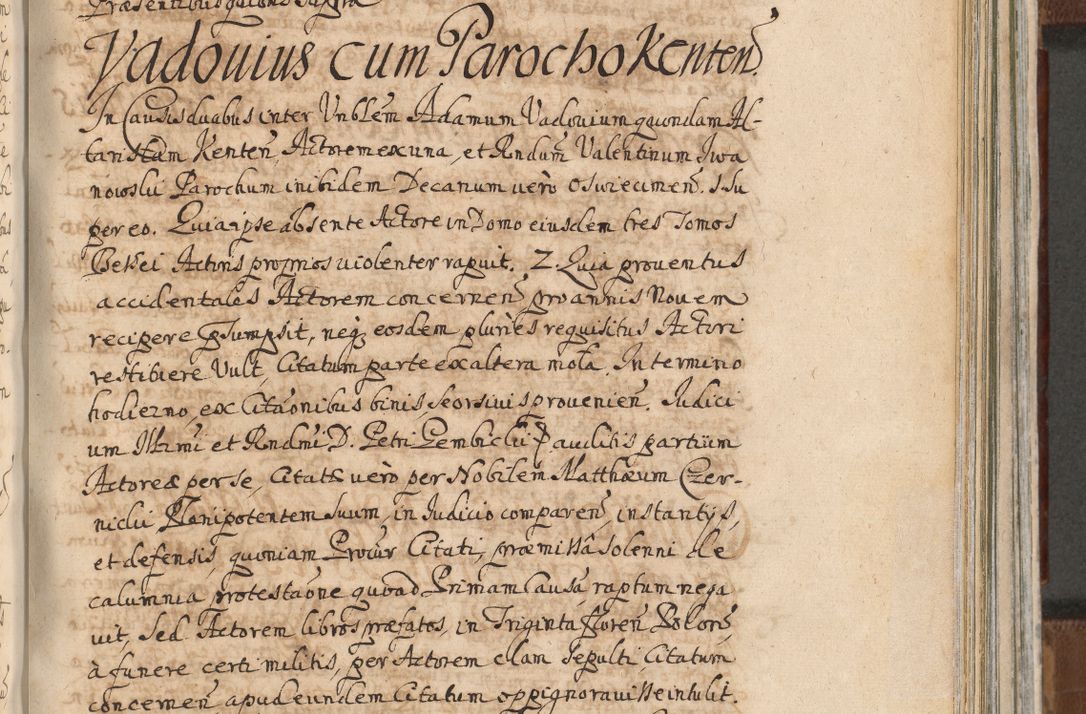 Præsentibus quibus supra
Vadouius cum Parocho Kenten̄.
In Causis duabus inter Vnblēm Adamum Vadouium quondam Al-
taristam Kenten̄, Actorem ex una, et Rndūm Valentinum Iwa
nowski Parochum inibidem Decanum verò Oswiecimen̄. 1. Su
per eo. Quia ipse absente Actore in Domo eiusdem tres Tomos
Besei Actoris proprios violenter rapuit. 2. Quia proventus
accidentales Actorem concernen̄ pro annis Novem
recipere psumpsit, neq; eosdem pluries requisitus Actori
restibiere Vult, Citatum parte ex altera mota. In termino
hodierno, ex Citaōnibus binis seorsivis provenien̄. Iudici
um Illrmi et Rndmi D. Petri Gembiclii P auditis partium
Actore per se, Citate verò per Nobilem Matthæum Czer-
niclii Plenipotentem suum, in Iudicio comparen̄, instantijs,
et defensis, quoniam Procūr Citati, præmissâ solenni de
calumnia protestaōne quoad Primam Causā, raptum nega
uit, Sed Actorem libros præfatos, in Triginta floren̄ Polon̄,
à funere certi militis, per Actorem clam sepulti Citatum
concernen̄ apud eundem Citatum oppignorauisse intulit.